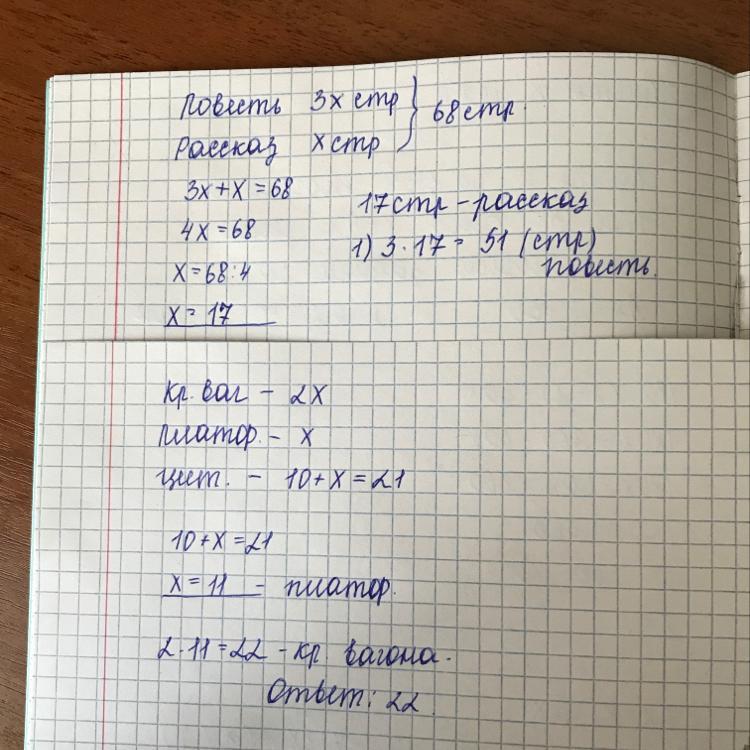 Повесть 3x стр } 68 стр.
Рассказ x стр
3x+x=68
4x=68
x=68:4
x=17
17 стр - рассказ
1) 3·17= 51 (стр)
повесть.
кр. ваг - 2x
платфор. - x
цист. - 10+x=21
10+x=21
x=11 - платфор.
2·11=22 - кр. вагона.
Ответ: 22.